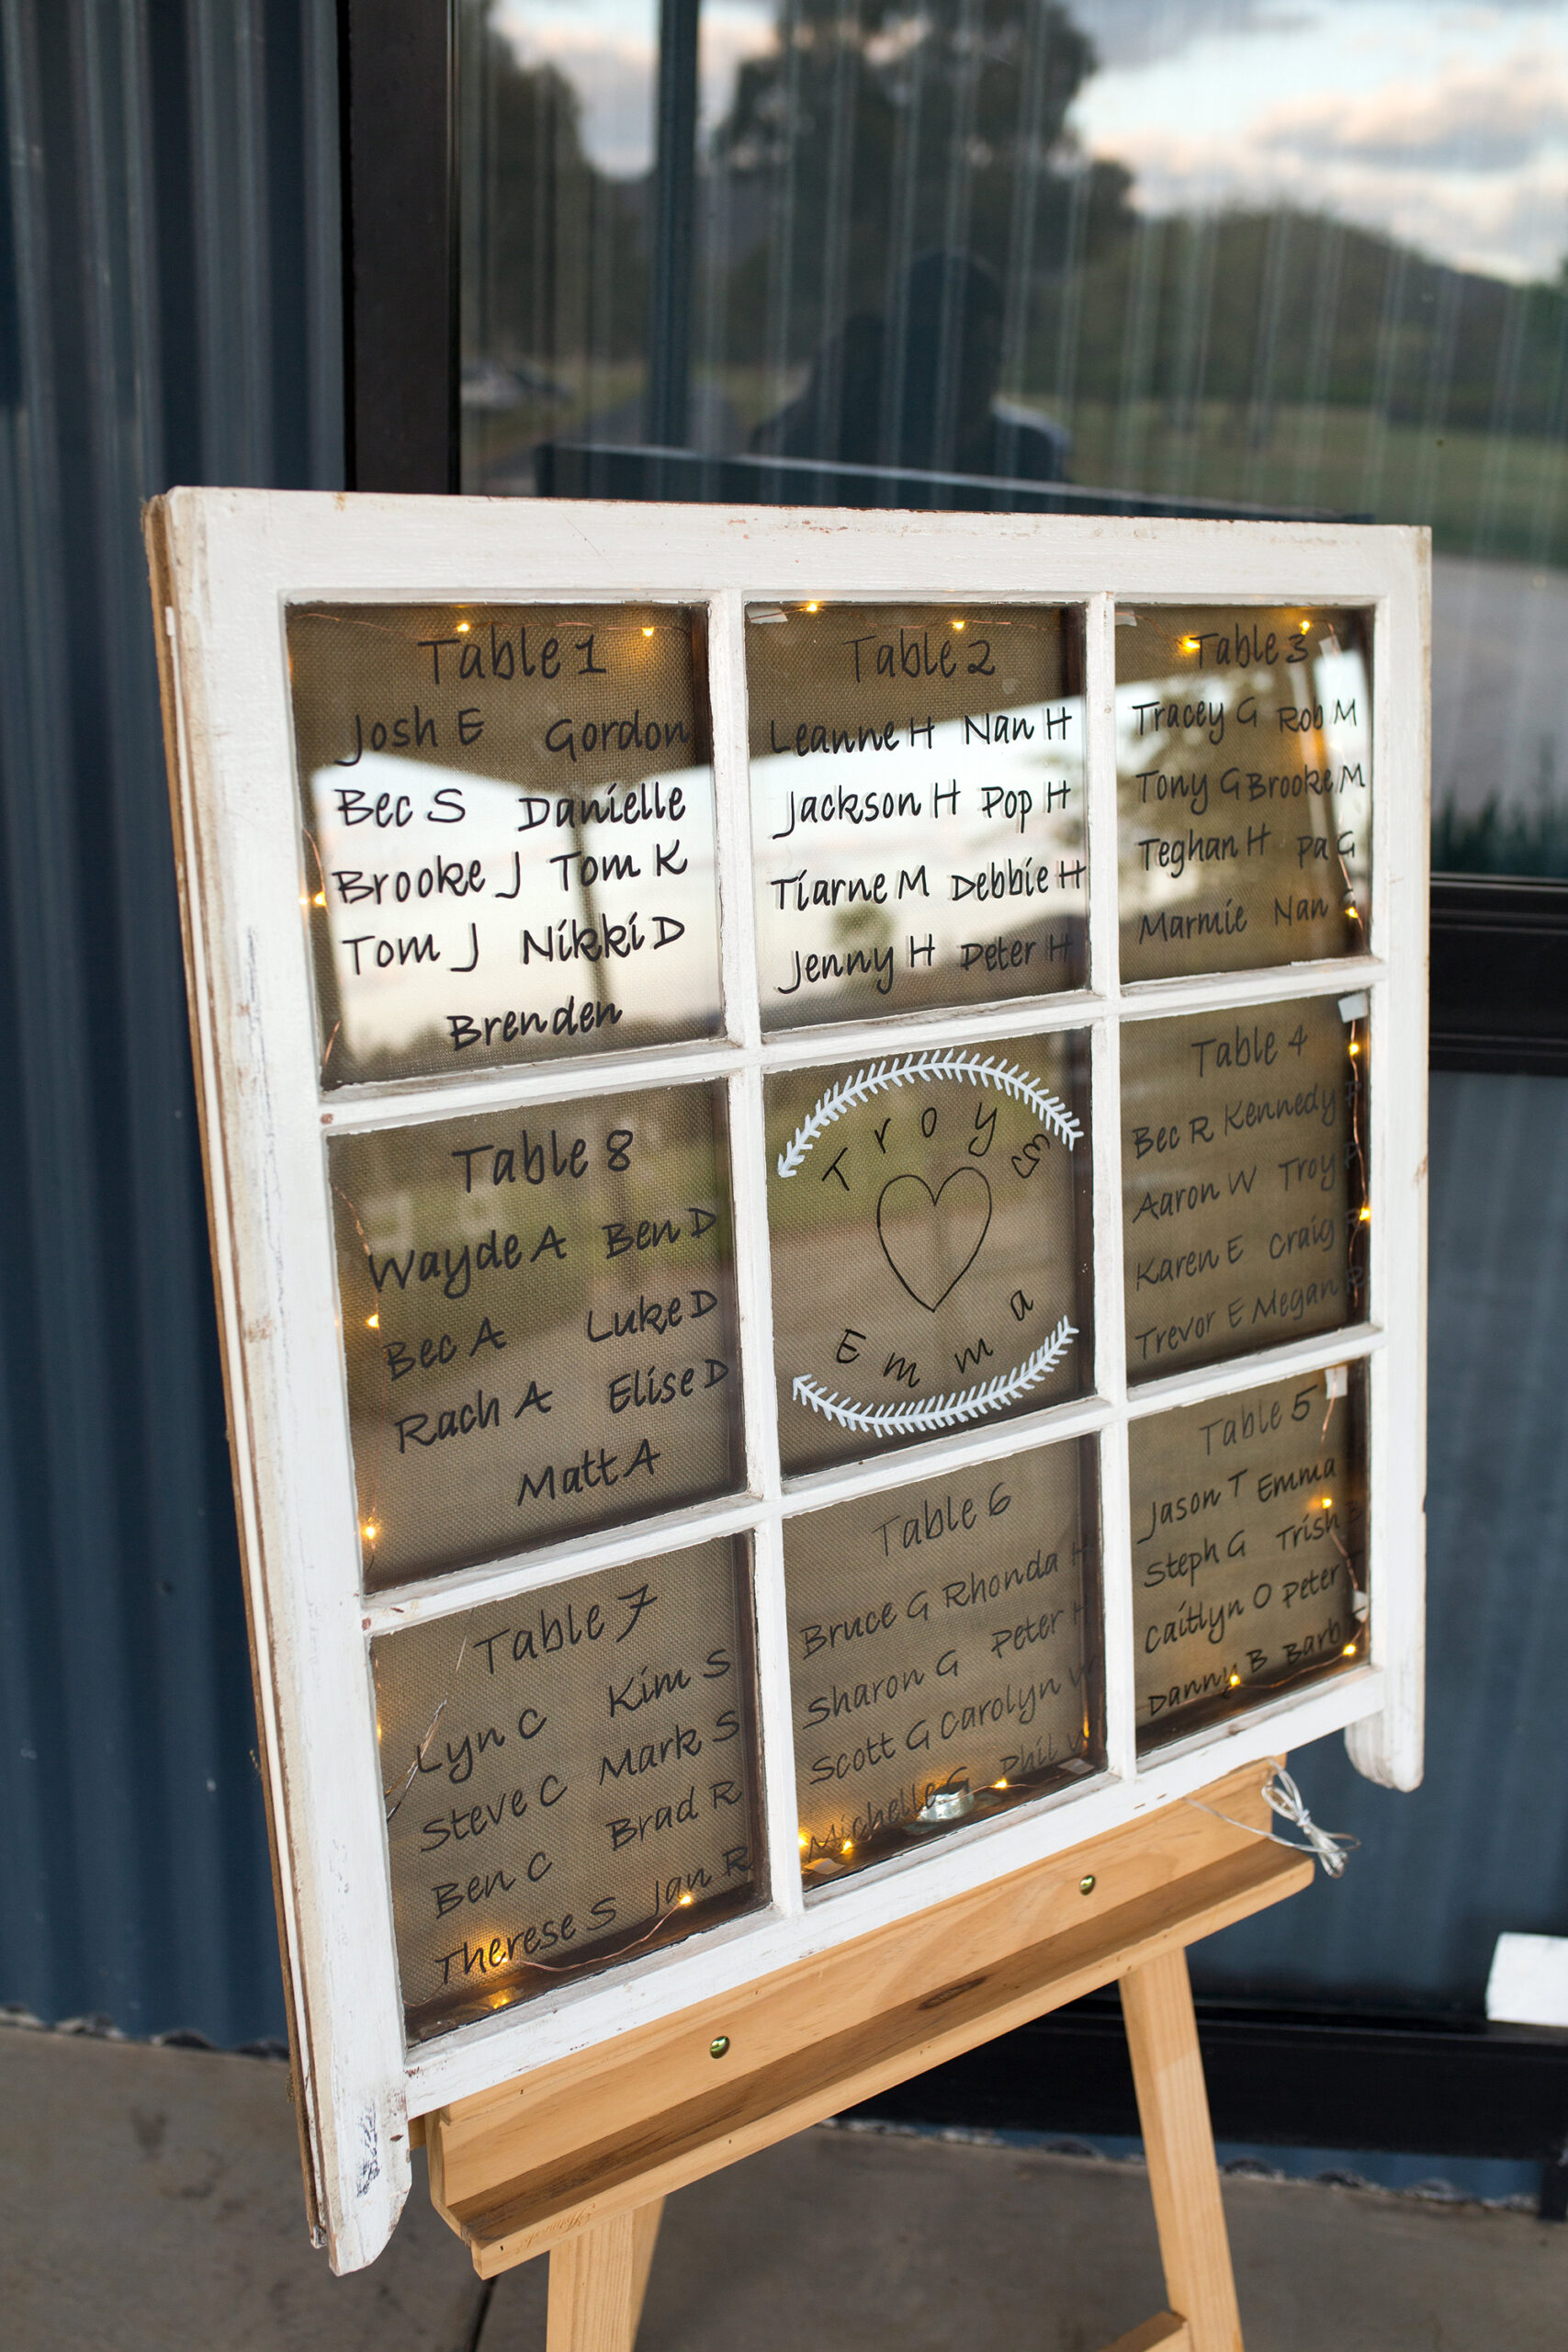 Table 1
Josh E Gordon
Bec S Danielle
Brooke J Tom K
Tom J Nikki D
Brenden
Table 2
Leanne H Nan H
Jackson H Pop H
Tiarne M Debbie H
Jenny H Peter H
Table 3
Tracey G Rob M
Tony G Brooke M
Teghan H Pa G
Marmie Nan G
Table 8
Wayde A Ben D
Bec A Luke D
Rach A Elise D
Matt A
Troy &
Emma
Table 4
Bec R Kennedy P
Aaron W Troy P
Karen E Craig P
Trevor E Megan P
Table 7
Lyn C Kim S
Steve C Mark S
Ben C Brad R
Therese S Jan R
Table 6
Bruce G Rhonda H
Sharon G Peter H
Scott G Carolyn W
Michelle G Phil W
Table 5
Jason T Emma
Steph G Trish
Caitlyn O Peter
Danny B Barb